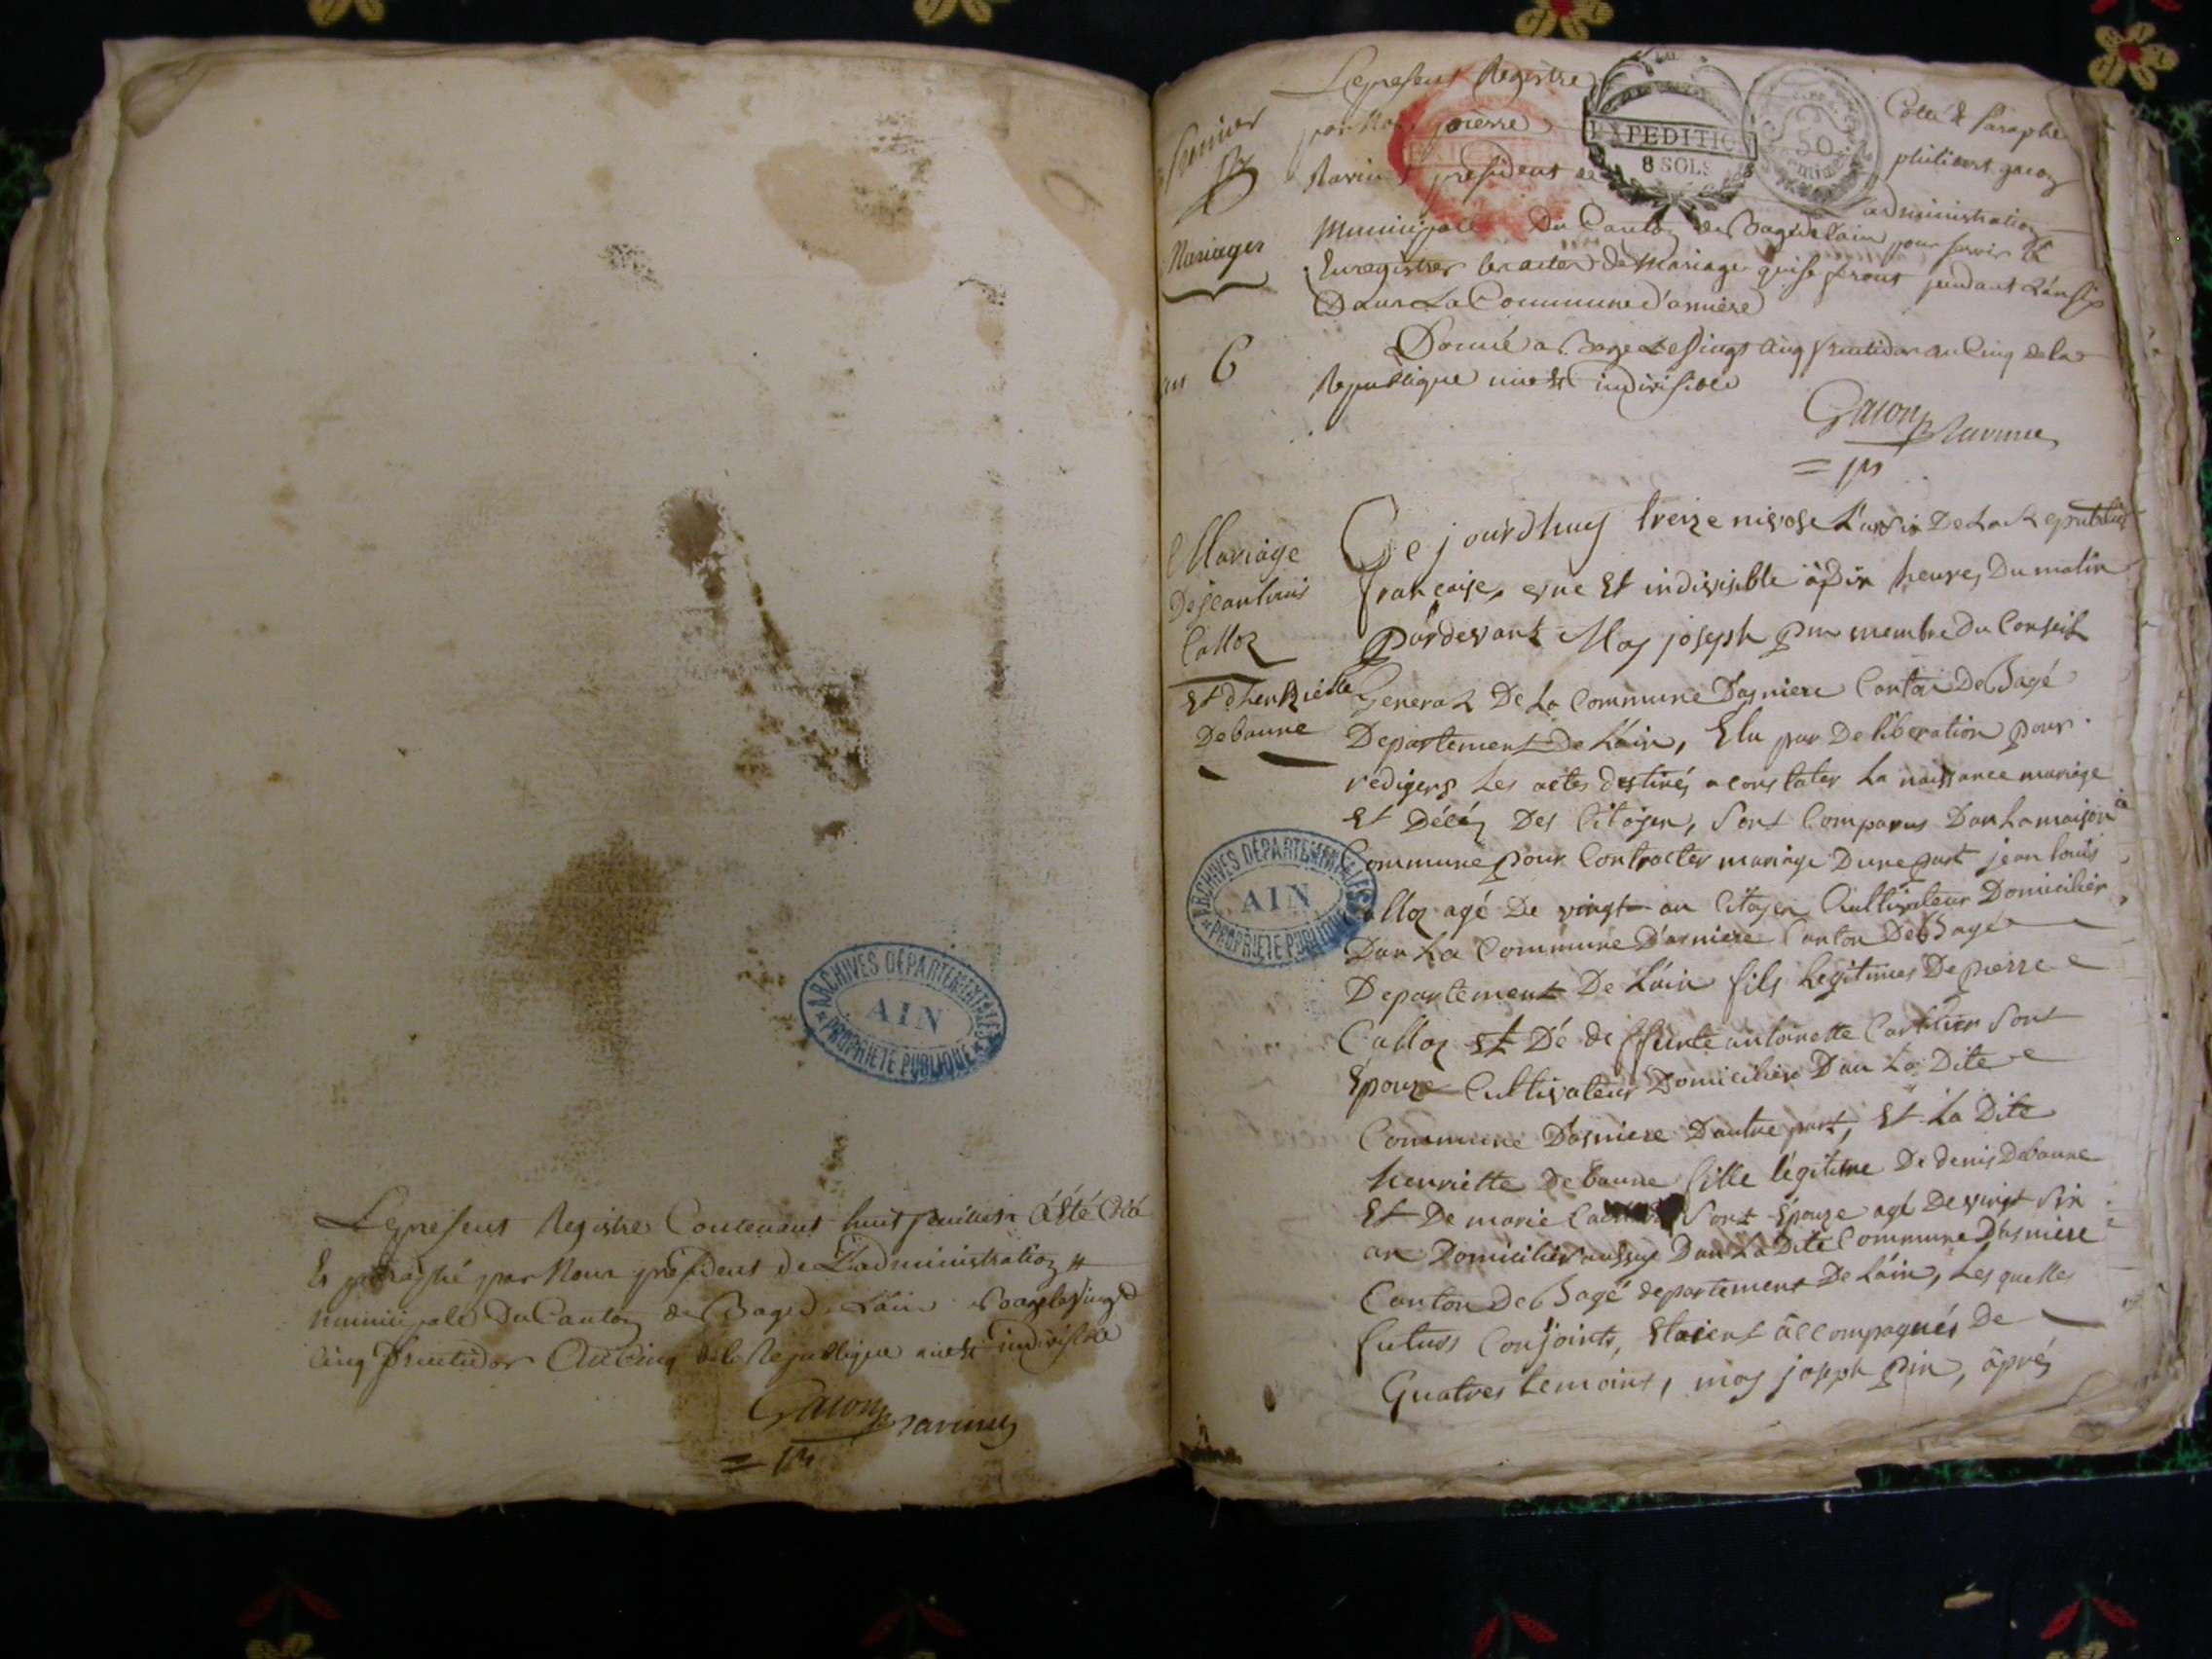 Le present Registre Contenant huit feuillets à été Côté
Et paraphé par Nous président de L'administration
municipale Du Canton de Bagé D. L'ain Bagé le vingt
cinq fructidor An Cinq de la Republique une et indivisible
Gacon Ravinet
ARCHIVES DÉPARTEMENTALES
AIN
PROPRIÉTÉ PUBLIQUE
Premier
Mariages
an 6
Le present Registre Coté & Paraphé
par Nous pierre philibert gacon
Ravinet président de administration
Municipale Du Canton de Bagé de lain pour servir
Enregistrer les actes de Mariage qui se feront pendant L'an six
Dans La Commune d'aniere
Donné a Bagé Le vingt cinq fructidor an Cinq de la
Republique une et indivisible
Gacon Ravinet
EXPEDITION
8 SOLS
50
Mariage
De jean louis
Calloz
Et dhenriette
Debaune
Ce jourdhuy treize nivose L'an six De La Republique
francaise, une Et indivisible à dix heures Du matin
Pardevant Moy joseph pin membre Du Conseil
General De La Commune Dasniere Canton De Bagé
Departement De L'ain, Elu par Deliberation pour
rediger Les actes destinés a constater La naissance mariage
Et Décés Des Citoyen, Sont Comparus Dan La maison
Commune pour Contracter mariage Dune part jean louis
Calloz agé De vingt an Citoyen Cultivateur Domicilier
Dan La Commune D'asniere Canton De Bagé
Departement De L'ain fils Legitimes De pierre
Calloz Et Dé deffunte antoinette Sont
Epouze Cultivateur Domicilier Dan La Dite
Commune Dasniere Dautre part, Et La Dite
henriette Debaune fille légitime De denis Debaune
Et De marie Sont Epouze agé De vingt Six
an Domicilier aussy Dan La Dite Commune Dasniere
Canton De Bagé departement De L'ain, Les quelles
futurs Conjoints, Etaient accompagnés De
Quatres temoins, moy joseph pin, âprés
ARCHIVES DÉPARTEMENTALES
AIN
PROPRIÉTÉ PUBLIQUE